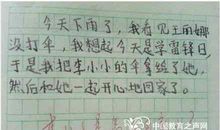 今天下雨了，我看见王雨娜
没打伞，我想起今天是学雷锋日，
于是我把李小小的伞拿给了她，
然后和她一起开心地回家了。
中国教育之声网